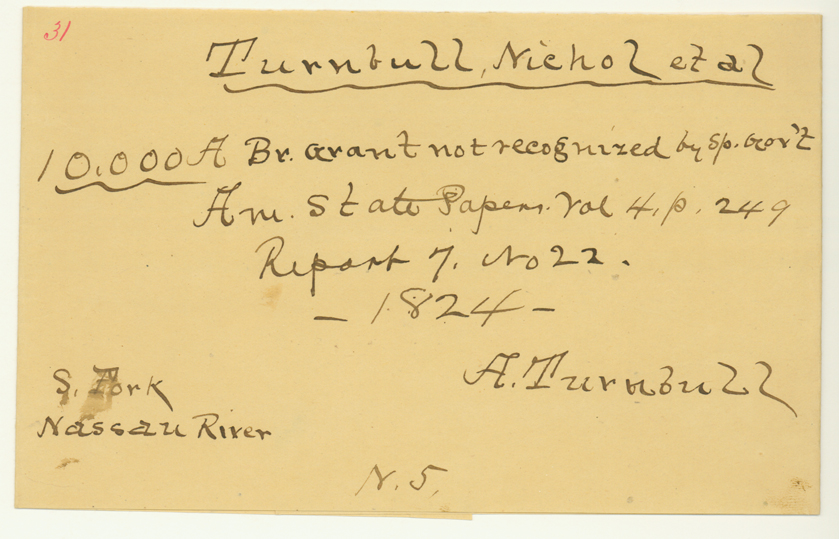 31
Turnbull, Nichol et al
10.000 A Br. Grant not recognized by Sp. Gov't
Am. State Papers. Vol 4. p. 249
Report 7. No 22.
- 1824 -
A. Turnbull
S. Fork
Nassau River
N. 5.